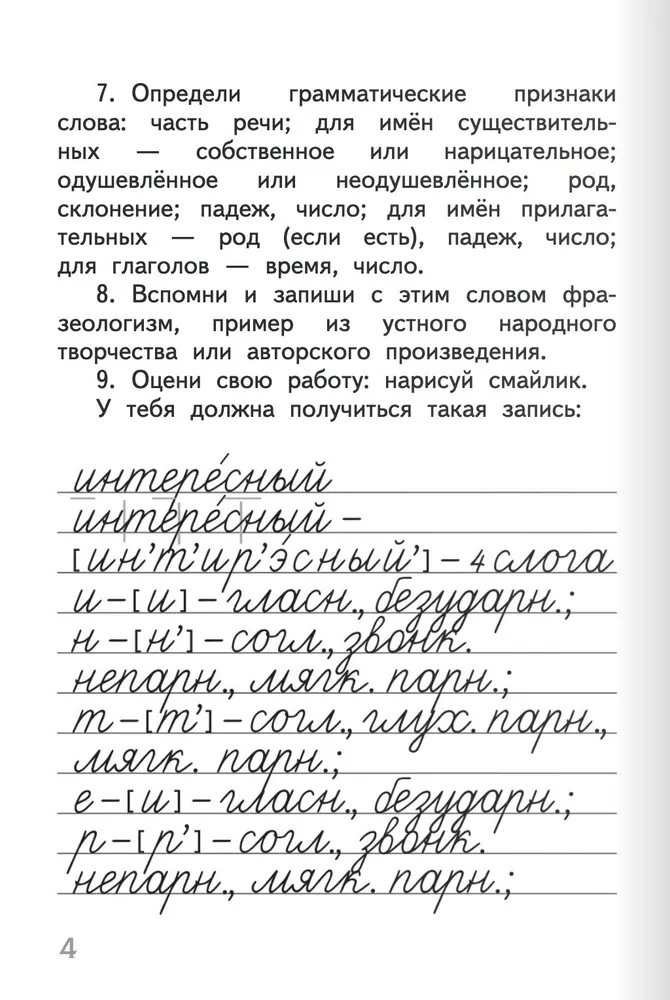 7. Определи грамматические признаки
слова: часть речи; для имён существитель-
ных — собственное или нарицательное;
одушевлённое или неодушевлённое; род,
склонение; падеж, число; для имён прилага-
тельных — род (если есть), падеж, число;
для глаголов — время, число.
8. Вспомни и запиши с этим словом фра-
зеологизм, пример из устного народного
творчества или авторского произведения.
9. Оцени свою работу: нарисуй смайлик.
У тебя должна получиться такая запись:
интере́сный
интере́сный –
[ин’т’ир’э́сный’] – 4 слога
и – [и] – гласн., безударн.;
н – [н’] – согл., звонк.
непарн., мягк. парн.;
т – [т’] – согл., глух. парн.,
мягк. парн.;
е – [и] – гласн., безударн.;
р – [р’] – согл., звонк.
непарн., мягк. парн.;
4